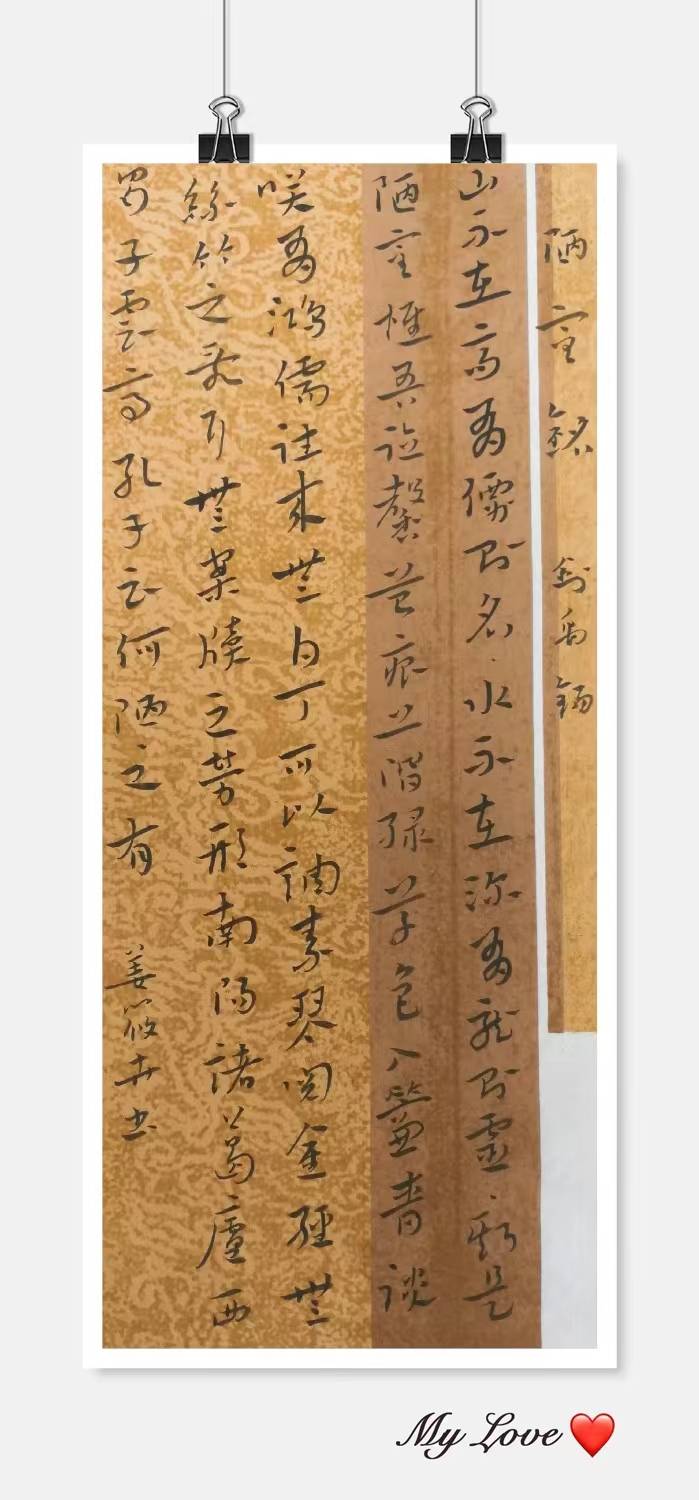 陋室銘 劉禹錫
山不在高為僊則名水不在深為龍則靈斯是
陋室惟吾德馨苔痕上階緑草色入簾青談
咲為鴻儒往來無白丁可以調素琴閱金經無
絲竹之亂耳無案牘之勞形南陽諸葛廬西
蜀子雲亭孔子云何陋之有 姜筱卉书
My Love